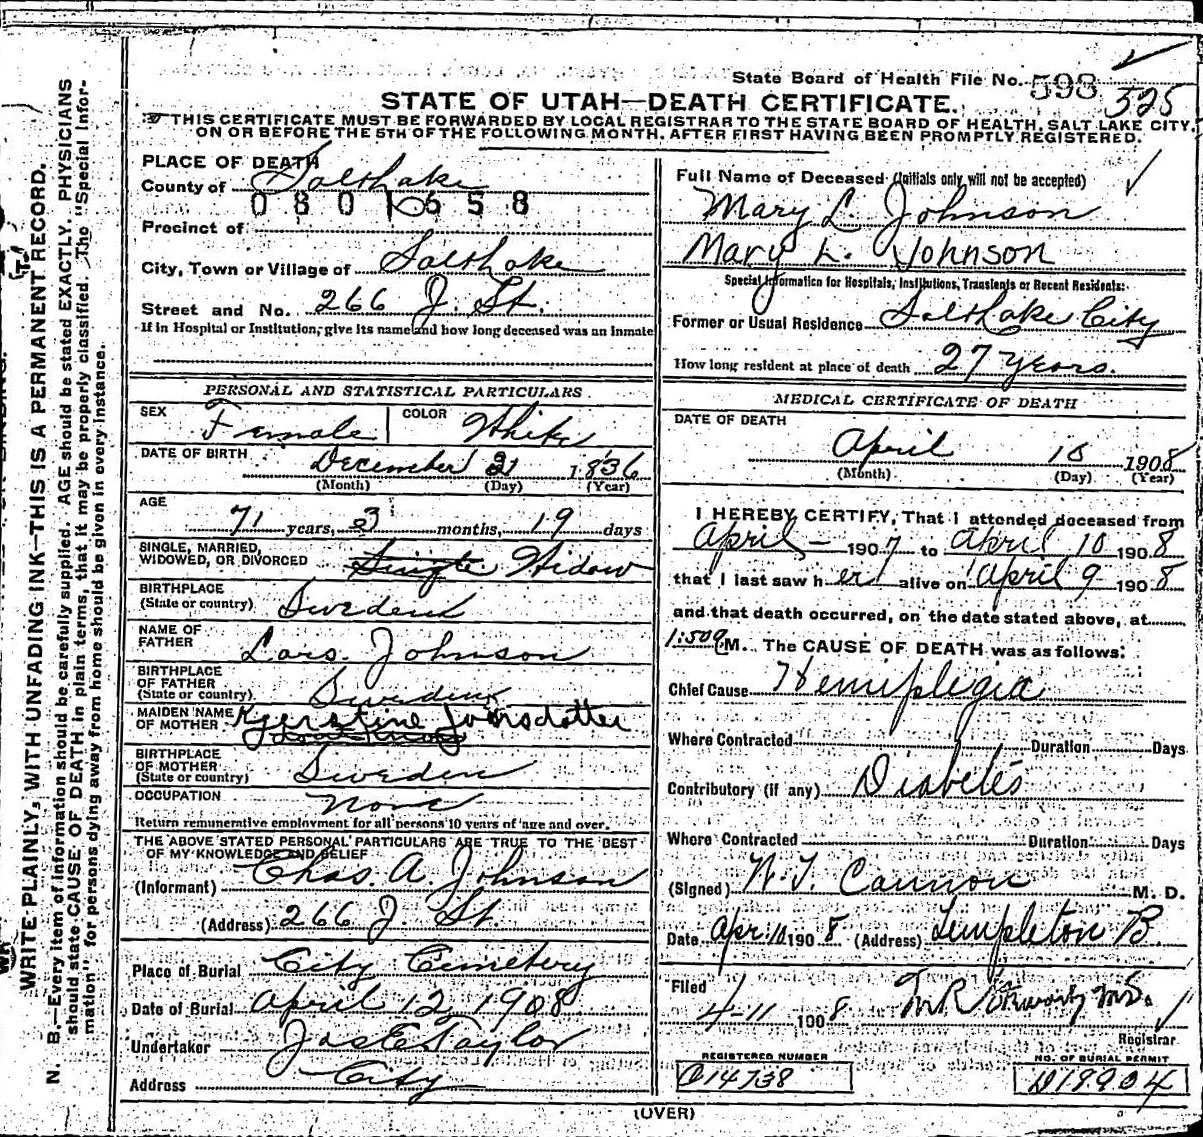 State Board of Health File No. 593 525
STATE OF UTAH—DEATH CERTIFICATE.
THIS CERTIFICATE MUST BE FORWARDED BY LOCAL REGISTRAR TO THE STATE BOARD OF HEALTH, SALT LAKE CITY,
ON OR BEFORE THE 5TH OF THE FOLLOWING MONTH, AFTER FIRST HAVING BEEN PROMPTLY REGISTERED.
WRITE PLAINLY, WITH UNFADING INK—THIS IS A PERMANENT RECORD.
N. B.—Every item of information should be carefully supplied. AGE should be stated EXACTLY. PHYSICIANS
should state CAUSE OF DEATH in plain terms, that it may be properly classified. The "Special Infor-
mation" for persons dying away from home should be given in every instance.
PLACE OF DEATH
County of Salt Lake
0801658
Precinct of
City, Town or Village of Salt Lake
Street and No. 266 J. St.
If in Hospital or Institution, give its name and how long deceased was an inmate
PERSONAL AND STATISTICAL PARTICULARS
SEX Female COLOR White
DATE OF BIRTH December 21 1836
(Month) (Day) (Year)
AGE
71 years, 3 months, 19 days
SINGLE, MARRIED,
WIDOWED, OR DIVORCED Single Widow
BIRTHPLACE
(State or country) Sweden
NAME OF
FATHER Lars Johnson
BIRTHPLACE
OF FATHER
(State or country) Sweden
MAIDEN NAME
OF MOTHER
BIRTHPLACE
OF MOTHER
(State or country) Sweden
OCCUPATION None
Return remunerative employment for all persons 10 years of age and over.
THE ABOVE STATED PERSONAL PARTICULARS ARE TRUE TO THE BEST
OF MY KNOWLEDGE AND BELIEF
(Informant) Chas. A. Johnson
(Address) 266 J St.
Place of Burial City Cemetery
Date of Burial April 12, 1908
Undertaker Jos E Taylor
Address City
Full Name of Deceased (Initials only will not be accepted)
Mary L. Johnson
Mary L. Johnson
Special Information for Hospitals, Institutions, Transients or Recent Residents:
Former or Usual Residence Salt Lake City
How long resident at place of death 27 years.
MEDICAL CERTIFICATE OF DEATH
DATE OF DEATH
April 10 1908
(Month) (Day) (Year)
I HEREBY CERTIFY, That I attended deceased from
April — 1907 to April 10 1908
that I last saw her alive on April 9 1908
and that death occurred, on the date stated above, at
1:50 a M. The CAUSE OF DEATH was as follows:
Chief Cause Hemiplegia
Where Contracted Duration Days
Contributory (if any) Diabetes
Where Contracted Duration Days
(Signed) W. T. Cannon M. D.
Date Apr. 10 1908 (Address) Templeton B.
Filed
4-11 1908
Registrar
REGISTERED NUMBER
NO. OF BURIAL PERMIT
14738
19904
(OVER)